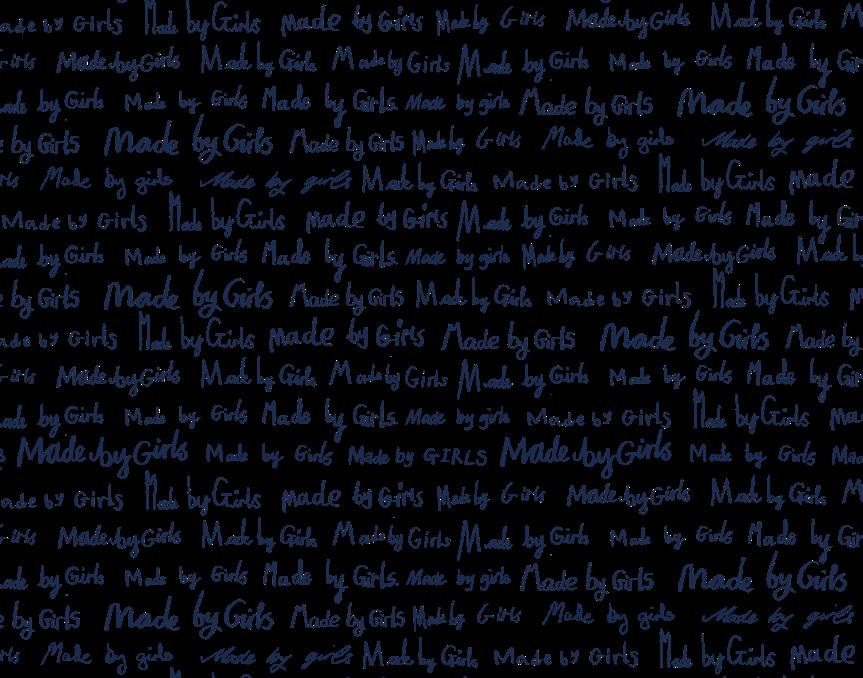 ade by Girls Made by Girls Made by Girls Made by Girls Made by Girls Made by Girls M
Girls Made by Girls Made by Girls Made by Girls Made by Girls Made by Girls Made by Gir
ade by Girls Made by Girls Made by Girls. Made by girls Made by Girls Made by Girls
e by Girls Made by Girls Made by Girls Made by Girls Made by girls Made by girls
rls Made by girls Made by girls Made by Girls Made by Girls Made by Girls Made
Made by Girls Made by Girls Made by Girls Made by Girls Made by Girls Made by Gir
ade by Girls Made by Girls Made by Girls. Made by girls Made by Girls Made by Girls Made b
e by Girls Made by Girls Made by Girls Made by Girls Made by Girls Made by Girls M
ade by Girls Made by Girls Made by Girls Made by Girls Made by Girls Made by
Girls Made by Girls Made by Girls Made by Girls Made by Girls Made by Girls Made by Gir
ade by Girls Made by Girls Made by Girls. Made by girls Made by Girls Made by Girls Ma
s Made by Girls Made by Girls Made by GIRLS Made by Girls Made by Girls Ma
ade by Girls Made by Girls Made by Girls Made by Girls Made by Girls Made by Girls M
Girls Made by Girls Made by Girls Made by Girls Made by Girls Made by Girls Made by Gir
ade by Girls Made by Girls Made by Girls. Made by girls Made by Girls Made by Girls
e by Girls Made by Girls Made by Girls Made by Girls Made by girls Made by girls
rls Made by girls Made by girls Made by Girls Made by Girls Made by Girls Made